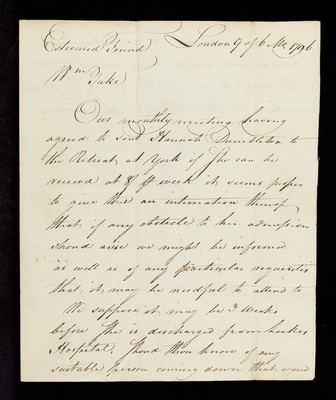 Esteemed Friend London 9 of 6 Mo 1796
Wm Tuke
Our monthly meeting having
agreed to send Hannah Dumbleton to
the Retreat at York if She can be
receved at 8/ P week it seems proper
to give thee an intimation thereof
that if any obstacle to her admission
should arise we might be informed
as well as of any particular requisites
that it may be needful to attend to
We suppose it may be 3 weeks
before She is discharged from Lukes
Hospital, Should thou know of any
suitable person coming down that would